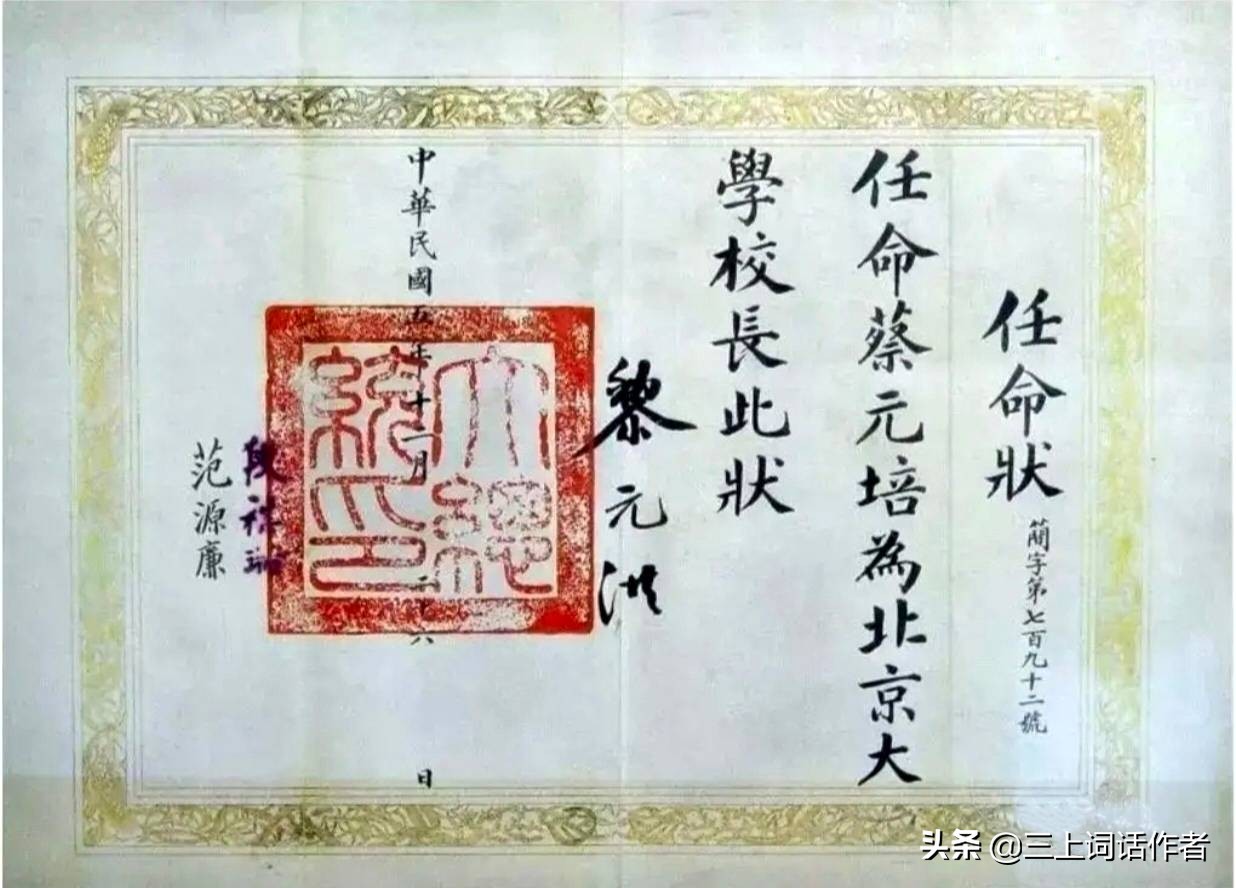 任命狀
簡字第七百九十二號
任命蔡元培為北京大
學校長此狀
黎元洪
大總
統印
中華民國五年十二月二十六日
段祺瑞
范源廉
头条 @三上词话作者